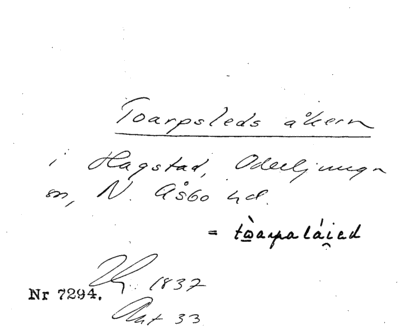 Toarpsleds åkern
i Hagstad, Oderljunga
sn, N. Åsbo hd.
= tòarpaláied
1837
Nr 7294.
Akt 33